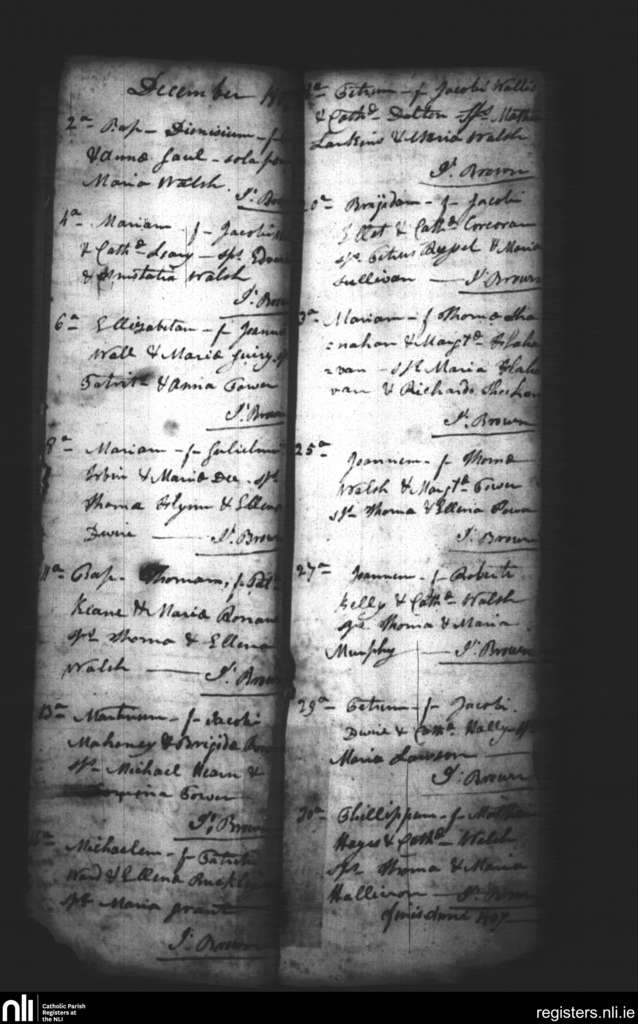 December
2ª Bap - Dionisium - f
& Annæ Gaul - sola
Maria Walsh.
Jˢ Brow
4ª Mariam f - Jacobi
& Cathᵉ Leary - spˢ Edm
& Anastatia Walsh
Jˢ Brow
6ª Ellizabetam - f Joannis
Wall & Mariæ Guiry - sp
Patritⁱ & Anna Power
Jˢ Brown
8ª Mariam - f - Gulielmi
& Mariæ Dee - spˢ
Thoma Flynn & Ellena
Dwire Jˢ Brown
11ª Bap - Thomam, f - Pat
Keane & Mariæ Ronane
spˢ Thoma & Ellena
Walsh Jˢ Brown
13ª Martinum - f - Jacobi
Mahoney & Brigidæ
spˢ Michael Hearn &
Power
Jˢ Brown
Michaelem - f - Patritii
Ward & Ellena
spˢ Maria grant
Jˢ Brown
Petrum - f Jacobi Wallis
& Cathᵉ Dalton - spˢ Math
Larkins & Maria Walsh
Jˢ Brown
20ª Brigidam - f - Jacobi
Ellet & Cathᵉ Corcoran
spˢ Petrus & Maria
Sullivan Jˢ Brown
3ª Mariam - f Thomæ Sha
=nahan & Margtᵉ Flaha
=van - spˢ Maria & Flaha
van & Richardo Sheehan
Jˢ Brown
25ª
Joannem - f Thomæ
Walsh & Margtᵃ Power
spˢ Thoma & Ellena Powe
Jˢ Brown
27ª Joannem - f - Roberti
Kelly & Cathᵉ Walsh
spˢ Thoma & Maria
Murphy Jˢ Brown
29ª Petrum - f - Jacobi
Dwire & Cathᵉ Hally - sp
Maria Lawson
Jˢ Brown
30ª Phillippum - f - Matthæ
Hayes & Cathᵉ - Walsh
spˢ Thoma & Maria
Halliron Jˢ Brown
finis anni 1807
nli
Catholic Parish
Registers at
the NLI
registers.nli.ie